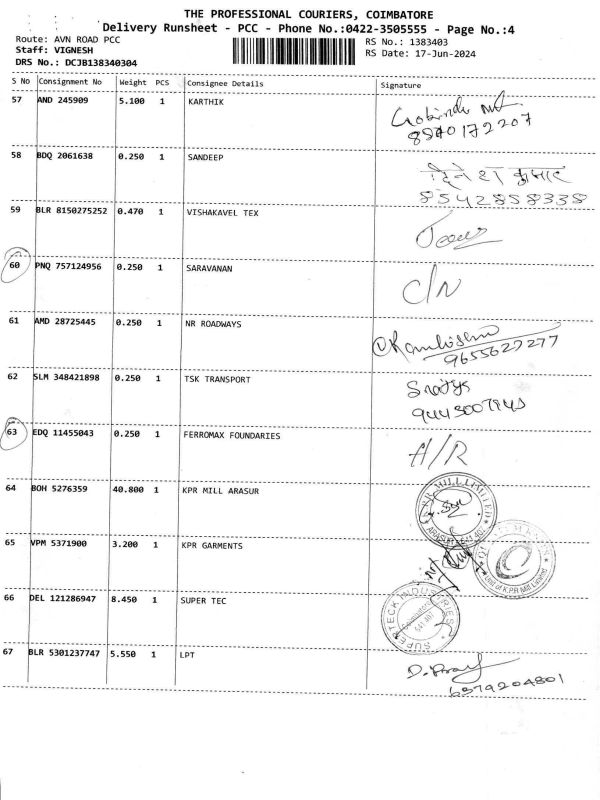 THE PROFESSIONAL COURIERS, COIMBATORE
Delivery Runsheet - PCC - Phone No.:0422-3505555 - Page No.:4
Route: AVN ROAD PCC
Staff: VIGNESH
DRS No.: DCJB138340304
RS No.: 1383403
RS Date: 17-Jun-2024
S No Consignment No Weight PCS Consignee Details Signature
57 AND 245909 5.100 1 KARTHIK
8870172207
58 BDQ 2061638 0.250 1 SANDEEP
दिनेश कुमार
8542858338
59 BLR 8150275252 0.470 1 VISHAKAVEL TEX
60 PNQ 757124956 0.250 1 SARAVANAN
C/N
61 AMD 28725445 0.250 1 NR ROADWAYS
9655627277
62 SLM 348421898 0.250 1 TSK TRANSPORT
63 EDQ 11455043 0.250 1 FERROMAX FOUNDARIES
A/R
64 BOH 5276359 40.800 1 KPR MILL ARASUR
K.P.R. MILL LIMITED
ARASUR - 641 407
65 VPM 5371900 3.200 1 KPR GARMENTS
Unit of K.P.R Mill Limited
66 DEL 121286947 8.450 1 SUPER TEC
SUPER TECK INDUSTRIES
Coimbatore
641 407
67 BLR 5301237747 5.550 1 LPT
6379204801